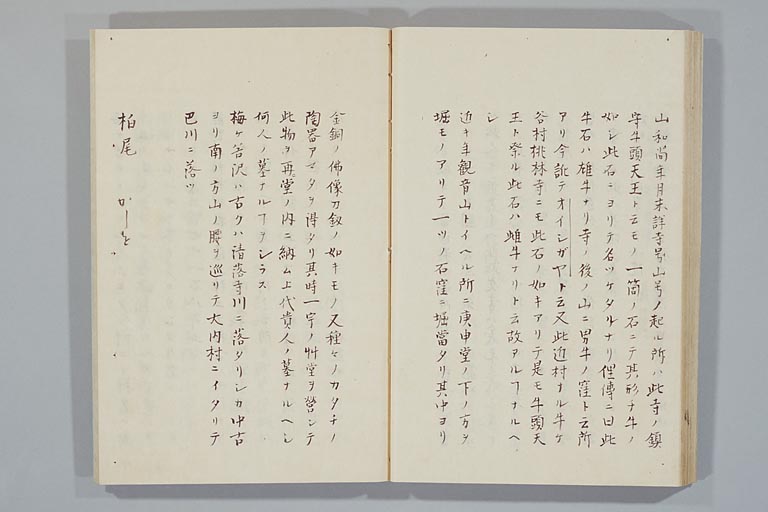 山和尚年月未詳寺号山号ノ起ル所ハ此寺ノ鎮
守牛頭天王ト云モノ一箇ノ石ニテ其形チ牛ノ
如シ此石ニヨリテ名ツケタルナリ俚傳ニ曰此
牛石ハ雄牛ナリ寺ノ後ノ山ニ男牛ノ窪ト云所
アリ今訛テオイシガヤト云又此近村ナル牛ケ
谷村桃林寺ニモ此石ノ如キアリテ是モ牛頭天
王ト祭ル此石ハ雌牛ナリト云故アルヿナルヘ
シ
近キ年観音山トイヘル所ニ庚申堂ノ下ノ方ヲ
堀モノアリテ一ツノ石窪ニ堀當タリ其中ヨリ
金銅ノ佛像刀釼ノ如キモノ又種々ノカタチノ
陶器アマタヲ得タリ其時一宇ノ艸堂ヲ營ンテ
此物ヲ再堂ノ内ニ納ム上代貴人ノ墓ナルヘシ
何人ノ墓ナルヿヲシラス
梅ケ谷沢ハ古クハ清落寺川ニ落タリシカ中古
ヨリ南ノ方山ノ腰ヲ巡リテ大内村ニイタリテ
巴川ニ落ツ
柏尾 かしを